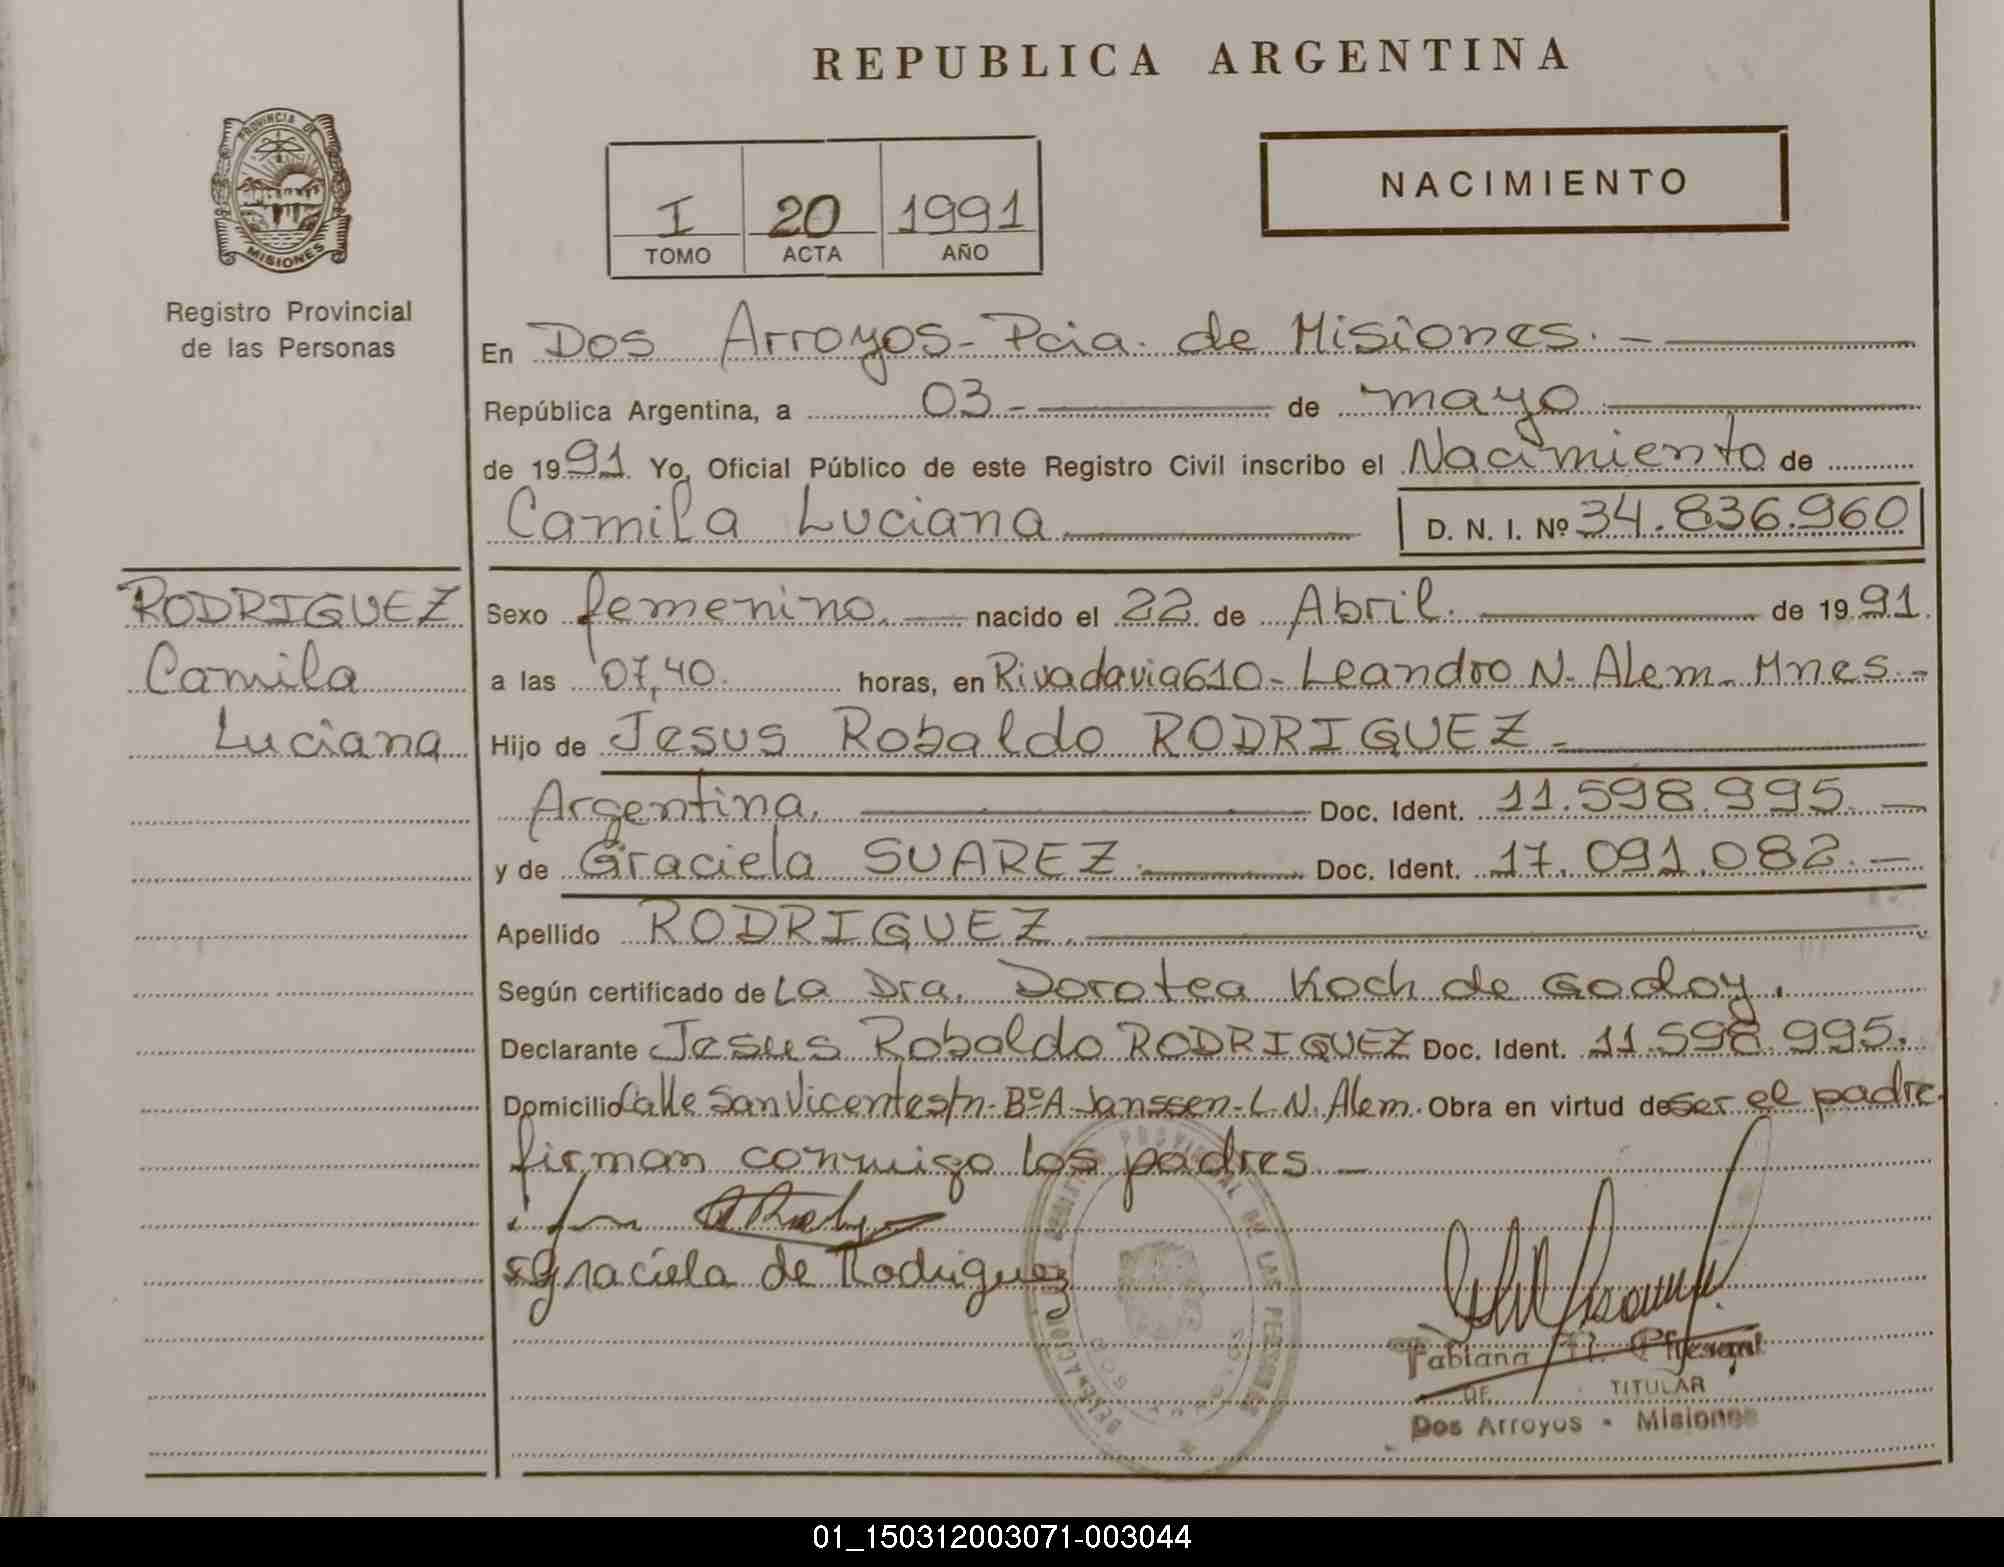 REPUBLICA ARGENTINA
PROVINCIA DE
MISIONES
Registro Provincial
de las Personas
NACIMIENTO
I 20 1991
TOMO ACTA AÑO
En Dos Arroyos - Pcia. de Misiones. -
República Argentina, a 03 - de mayo
de 1991. Yo, Oficial Público de este Registro Civil inscribo el Nacimiento de
Camila Luciana D. N. I. Nº 34.836.960
RODRIGUEZ
Camila
Luciana
Sexo femenino. nacido el 22 de Abril. de 1991.
a las 07,40. horas, en Rivadavia 610 - Leandro N. Alem - Mnes. -
Hijo de Jesus Robaldo RODRIGUEZ. -
Argentina. Doc. Ident. 11.598.995. -
y de Graciela SUAREZ. Doc. Ident. 17.091.082. -
Apellido RODRIGUEZ.
Según certificado de La Dra. Dorotea Koch de Godoy.
Declarante Jesus Robaldo RODRIGUEZ Doc. Ident. 11.598.995.
Domicilio Calle San Vicente s/n - Bº A. Janssen - L. N. Alem. Obra en virtud de ser el padre.
firman conmigo los padres -
Graciela de Rodriguez
PROVINCIAL DE LAS PERSONAS
Fabiana
TITULAR
Dos Arroyos - Misiones
01_150312003071-003044